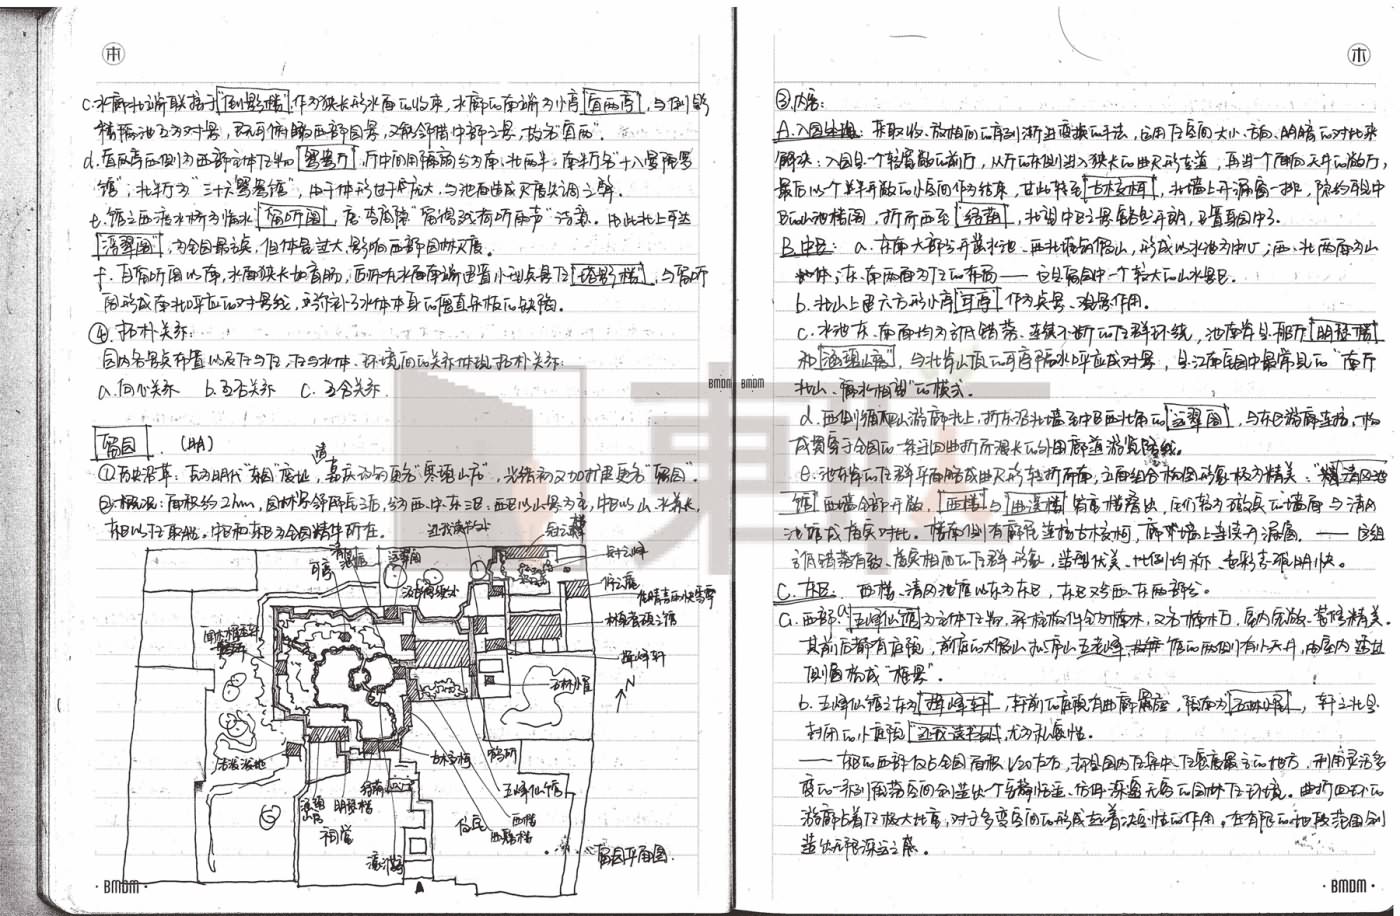 c.水廊北端联接于"倒影楼"作为狭长形水面的收束,水廊的南端为小亭"宜两亭",与倒影
楼隔池互为对景,既可俯瞰西部园景,又能邻借中部之景,故名"宜两"。
d.宜两亭西侧为西部主体建物"鸳鸯厅",厅中间用隔扇分为南、北两半,南半厅名"十八曼陀罗
馆",北半厅为"三十六鸳鸯馆",由于体形过于庞大,与池面造成尺度失调之弊。
e.馆之西渡水桥为临水"留听阁",
浮翠阁 为全园最高点,但体量过大,影响西部园林尺度。
f.自留听阁以南,水面狭长如盲肠,而于水面南端建置小型点景建"塔影楼",与留听
阁形成南北呼应的对景线,
④拓扑关系:
园内各景点布置以及建与建、建与水体、环境间的关系体现拓扑关系:
a.向心关系 b.互否关系 c.互含关系
留园 (明)
①历史沿革:原为明代"东园"废址,清嘉庆动改名"寒碧山庄",光绪初又加扩建更名"留园"。
②概况:面积约2hm,园林紧邻邸宅之后,分为西、中、东三区,西区以山景为主,中区以山、水兼长,
东区以建取胜。中区和东区为全园精华所在。
还我读书处
冠云楼
冠云峰
清风池馆
可亭
远翠阁
汲古得绠处
冠云台
佳晴喜雨快雪亭
林泉耆硕之馆
闻木樨香轩
揖峰轩
石林小屋
N
活泼泼地
古木交柯
鹤所
绿荫
五峰仙馆
涵碧山房
明瑟楼
西楼
住民
祠堂
留园平面图
BMDM
BMDM BMDM
③内容:
A.入园处理:采取收、放相间的序列渐进变换的手法,运用建空间大小、方向、明暗的对比来
解决:入园是一个较宽敞的前厅,从厅的东侧进入狭长的曲尺形走道,再进一个面向天井的敞厅,
最后以一个半开敞的小空间作为结束,至此转至"古木交柯",北墙上开漏窗一排,隐约可见中
区的山池楼阁,折而西至"绿荫",北望中区之景豁然开朗,已置身园中了。
B.中区: a.东南大部分开凿水池、西北堆筑假山,形成以水池为中心,西、北两面为山
体,东、南两面为建的布局——这是留园中一个较大的山水景区。
b.北山上建六方形小亭"可亭"作为点景、观景作用。
c.水池东、南面均为高低错落、连续不断的建群环绕,池南岸是船厅"明瑟楼"
和"涵碧山房",与北岸山顶的可亭隔水呼应成对景,是江南庭园中最常见的"南厅
北山、隔水相望"的模式。
d.西侧循爬山游廊北上,折东沿北墙至中区西北角的"远翠阁",与东区游廊连接,构
成贯穿于全园的一条迂回曲折而漫长的外围廊道游览路线。
e.池东岸的建群平面略成曲尺形转折而南,立面组合构图形象极为精美:"清风池
馆"西墙全部开敞,"西楼"与"曲溪楼"皆重楼叠出,它们较为敦实的墙面与清风
池馆成虚实对比。楼南侧有廊屋连接古木交柯,廊墙上连续开漏窗。——这组
高低错落有致、虚实相间的建群形象,造型优美、比例匀称、色彩素雅明快。
C.东区 西楼、清风池馆以东为东区,东区又分西、东两部分。
a.西部:"五峰仙馆"为主体建物,梁柱构件全为楠木,又名楠木厅,室内宏敞、装修精美。
其前后都有庭院,前庭的大假山拟庐山五老峰,馆的两侧有小天井,由室内透过
侧窗构成"框景"。
b.五峰仙馆之东为"揖峰轩",轩前的庭院有曲廊围庭,院南为"石林小屋",轩之北是
封闭的小庭院"还我读书处",尤为私密性。
——东区西部仅占全园面积1/20左右,却是园内建集中、建密度最高的地方,利用灵活多
变的一系列院落空间创造出一个安静恬适、仿佛深邃无穷的园林建环境。曲折回环的
游廊占着建极大比重,对于多变空间的形成起着决定性的作用,在有限的地段范围创
造出无限深远之感。
BMDM